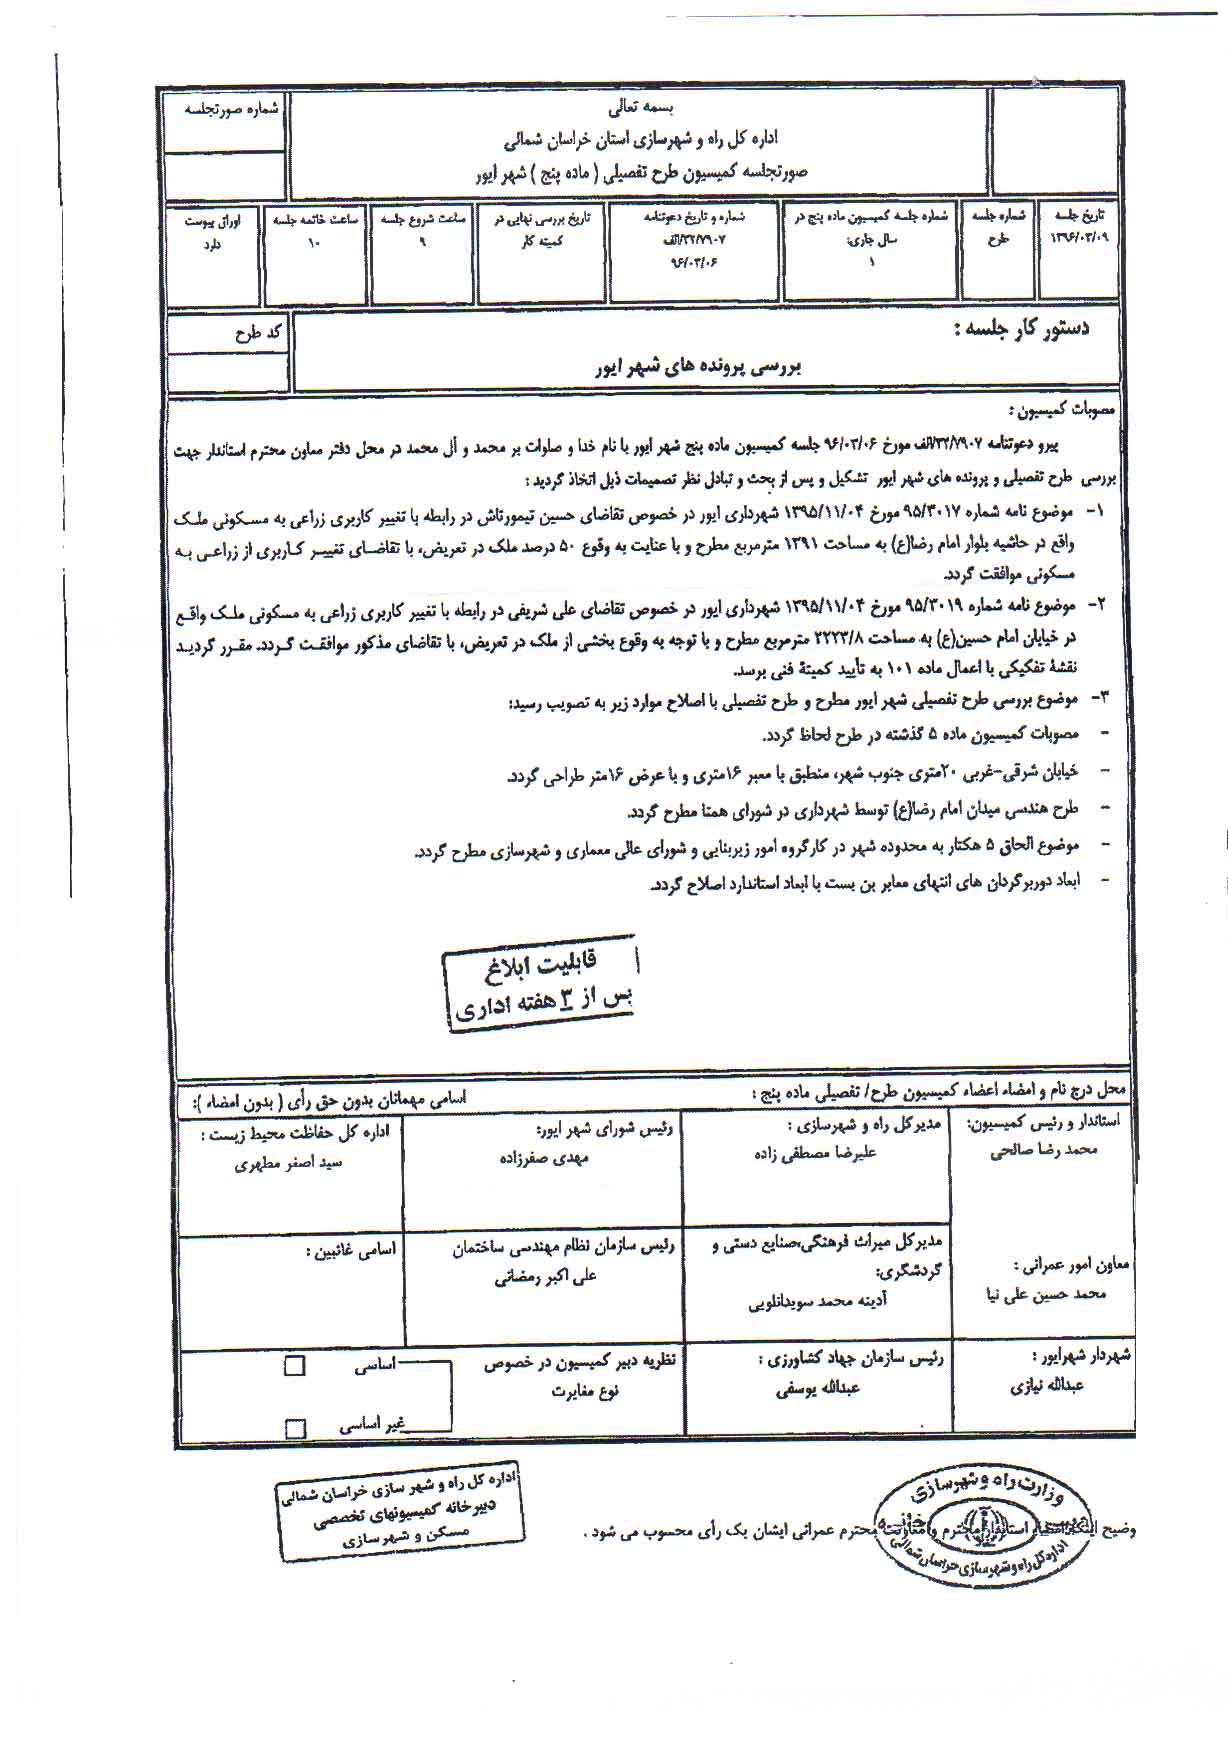 بسمه تعالی
اداره کل راه و شهرسازی استان خراسان شمالی
صورتجلسه کمیسیون طرح تفصیلی ( ماده پنج ) شهر ایور
شماره صورتجلسه
تاریخ جلسه
۱۳۹۶/۰۳/۰۹
شماره جلسه
طرح
شماره جلسه کمیسیون ماده پنج در
سال جاری:
۱
شماره و تاریخ دعوتنامه
۳۲/۷۹۰۷/الف
۹۶/۰۳/۰۶
تاریخ بررسی نهایی در
کمیته کار
ساعت شروع جلسه
۹
ساعت خاتمه جلسه
۱۰
اوراق پیوست
دارد
دستور کار جلسه :
بررسی پرونده های شهر ایور
کد طرح
مصوبات کمیسیون :
پیرو دعوتنامه ۳۲/۷۹۰۷/الف مورخ ۹۶/۰۳/۰۶ جلسه کمیسیون ماده پنج شهر ایور با نام خدا و صلوات بر محمد و آل محمد در محل دفتر معاون محترم استاندار جهت
بررسی طرح تفصیلی و پرونده های شهر ایور تشکیل و پس از بحث و تبادل نظر تصمیمات ذیل اتخاذ گردید :
۱- موضوع نامه شماره ۹۵/۳۰۱۷ مورخ ۱۳۹۵/۱۱/۰۴ شهرداری ایور در خصوص تقاضای حسین تیمورتاش در رابطه با تغییر کاربری زراعی به مسکونی ملک
واقع در حاشیه بلوار امام رضا(ع) به مساحت ۱۳۹۱ مترمربع مطرح و با عنایت به وقوع ۵۰ درصد ملک در تعریض، با تقاضای تغییر کاربری از زراعی به
مسکونی موافقت گردد.
۲- موضوع نامه شماره ۹۵/۳۰۱۹ مورخ ۱۳۹۵/۱۱/۰۴ شهرداری ایور در خصوص تقاضای علی شریفی در رابطه با تغییر کاربری زراعی به مسکونی ملک واقع
در خیابان امام حسین(ع) به مساحت ۲۲۲۳/۸ مترمربع مطرح و با توجه به وقوع بخشی از ملک در تعریض، با تقاضای مذکور موافقت گردد. مقرر گردید
نقشهٔ تفکیکی با اعمال ماده ۱۰۱ به تأیید کمیتهٔ فنی برسد.
۳- موضوع بررسی طرح تفصیلی شهر ایور مطرح و طرح تفصیلی با اصلاح موارد زیر به تصویب رسید:
- مصوبات کمیسیون ماده ۵ گذشته در طرح لحاظ گردد.
- خیابان شرقی-غربی ۲۰متری جنوب شهر، منطبق با معبر ۱۶متری و با عرض ۱۶متر طراحی گردد.
- طرح هندسی میدان امام رضا(ع) توسط شهرداری در شورای همتا مطرح گردد.
- موضوع الحاق ۵ هکتار به محدوده شهر در کارگروه امور زیربنایی و شورای عالی معماری و شهرسازی مطرح گردد.
- ابعاد دوربرگردان های انتهای معابر بن بست با ابعاد استاندارد اصلاح گردد.
قابلیت ابلاغ
پس از ۳ هفته اداری
محل درج نام و امضاء اعضاء کمیسیون طرح/ تفصیلی ماده پنج :
اسامی مهمانان بدون حق رأی ( بدون امضاء ):
استاندار و رئیس کمیسیون:
محمد رضا صالحی
مدیرکل راه و شهرسازی :
علیرضا مصطفی زاده
رئیس شورای شهر ایور:
مهدی صفرزاده
اداره کل حفاظت محیط زیست :
سید اصغر مطهری
معاون امور عمرانی :
محمد حسین علی نیا
مدیرکل میراث فرهنگی،صنایع دستی و
گردشگری:
آدینه محمد سویدانلویی
رئیس سازمان نظام مهندسی ساختمان
علی اکبر رمضانی
اسامی غائبین :
شهردار شهرایور :
عبدالله نیازی
رئیس سازمان جهاد کشاورزی :
عبدالله یوسفی
نظریه دبیر کمیسیون در خصوص
نوع مغایرت
اساسی
غیر اساسی
اداره کل راه و شهر سازی خراسان شمالی
دبیرخانه کمیسیونهای تخصصی
مسکن و شهرسازی
وزارت راه و شهرسازی
اداره کل راه و شهرسازی خراسان شمالی
وضیح اینکه امضاء استاندار محترم و معاونت محترم عمرانی ایشان یک رأی محسوب می شود .